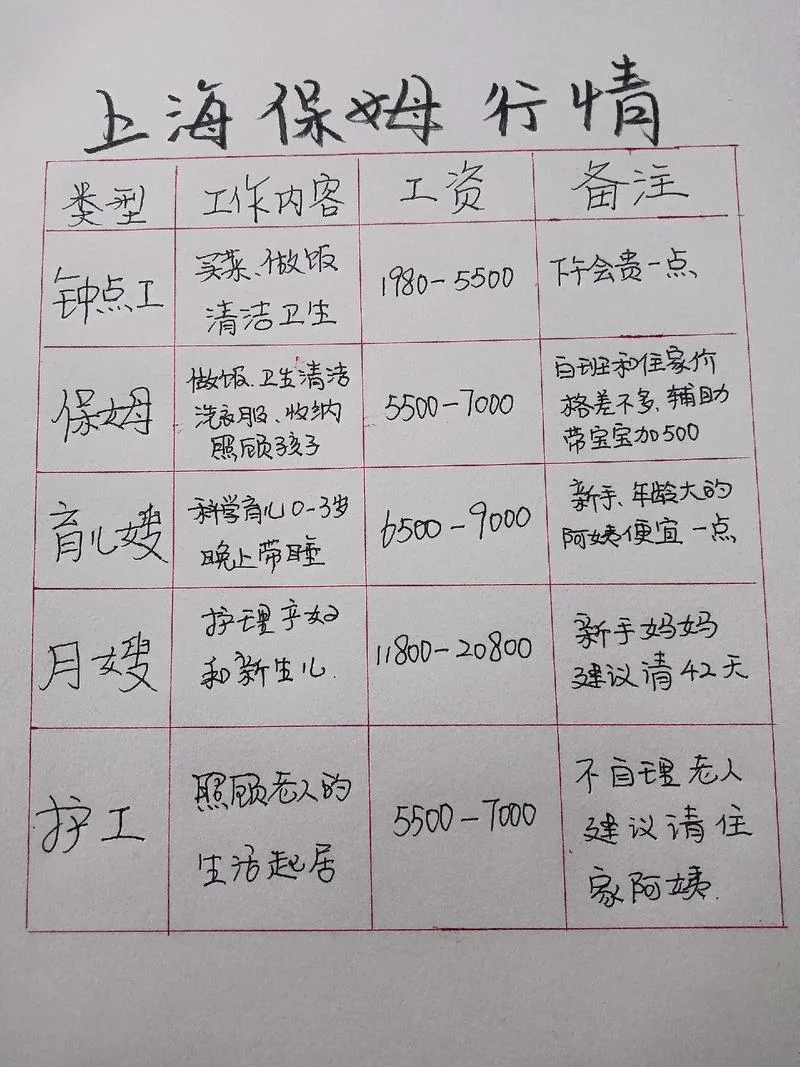 上海保姆行情
类型 工作内容 工资 备注
钟点工
买菜、做饭
清洁卫生
1980-5500
下午会贵一点
保姆
做饭、卫生清洁
洗衣服、收纳
照顾孩子
5500-7000
白班和住家价
格差不多,辅助
带宝宝加500
育儿嫂
科学育儿0-3岁
晚上带睡
6500-9000
新手、年龄大的
阿姨便宜一点
月嫂
护理产妇
和新生儿.
11800-20800
新手妈妈
建议请42天
护工
照顾老人的
生活起居
5500-7000
不自理老人
建议请住
家阿姨.